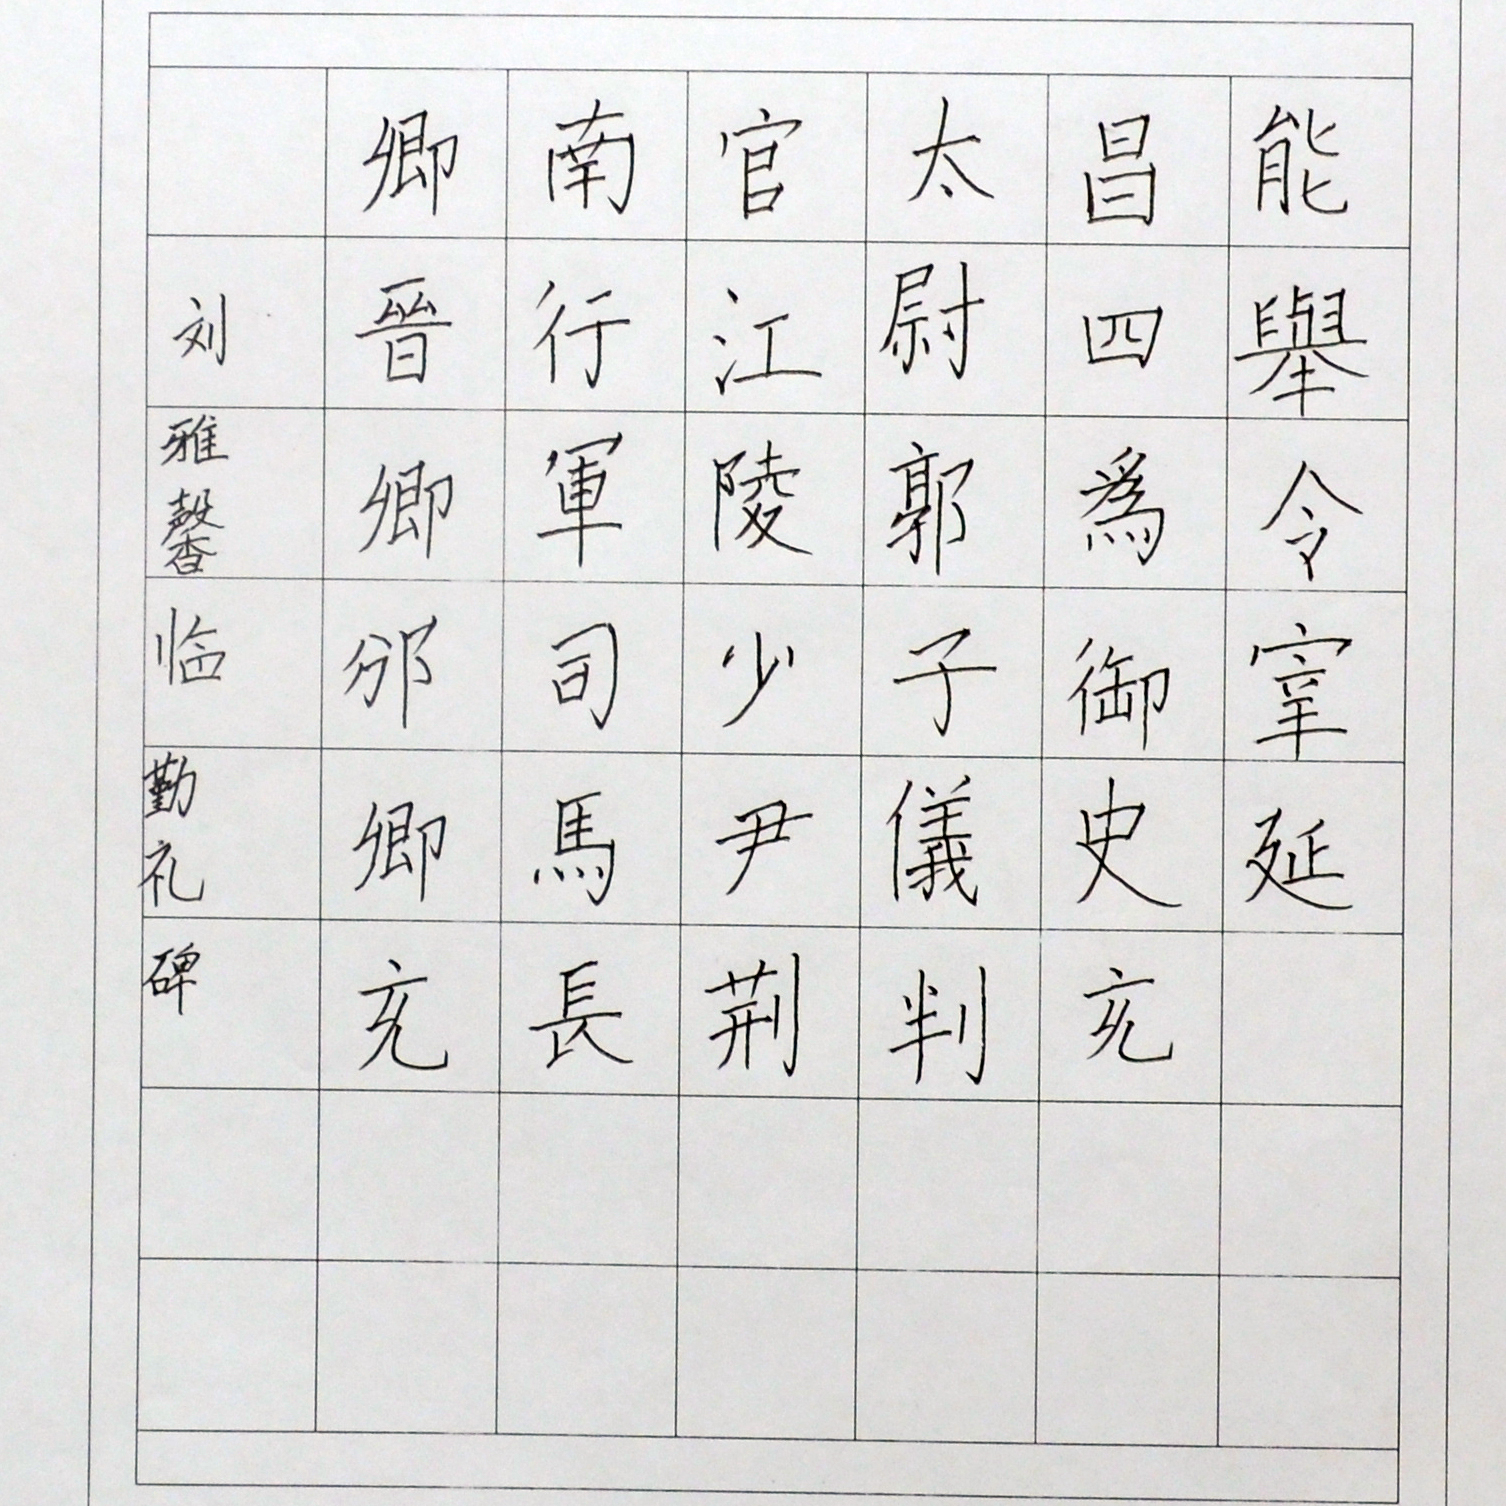 能舉令宰延
昌四爲御史充
太尉郭子儀判
官江陵少尹荆
南行軍司馬長
卿晉卿邠卿充
刘雅馨临勤礼碑